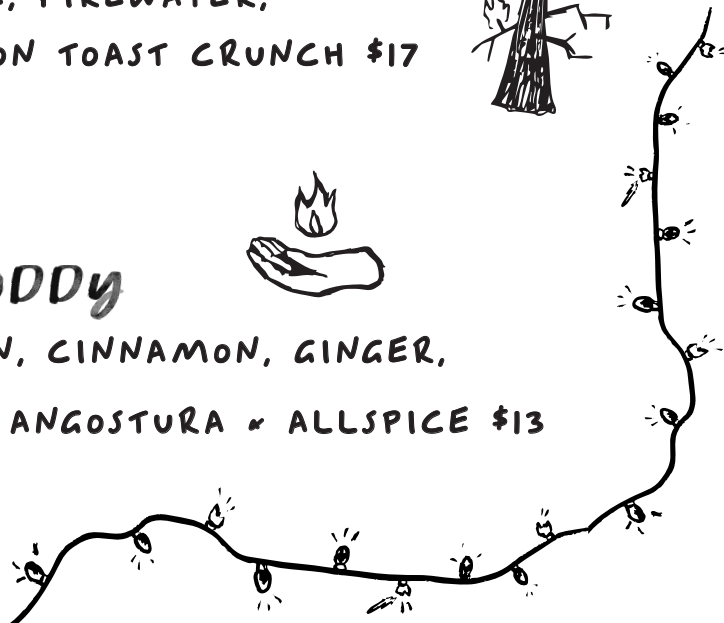 FIREWATER,
TOAST CRUNCH $17
CINNAMON, GINGER,
ANGOSTURA & ALLSPICE $13